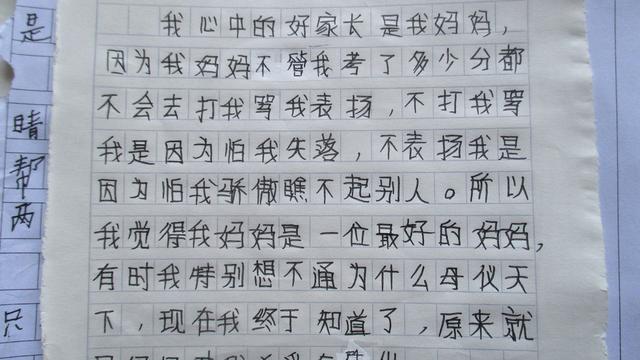 我心中的好家长是我妈妈，
因为我妈妈不管我考了多少分都
不会去打我骂我表扬，不打我骂
我是因为怕我失落，不表扬我是
因为怕我骄傲瞧不起别人。所以
我觉得我妈妈是一位最好的妈妈，
有时我特别想不通为什么母仪天
下，现在我终于知道了，原来就
是
晴
帮
两
只